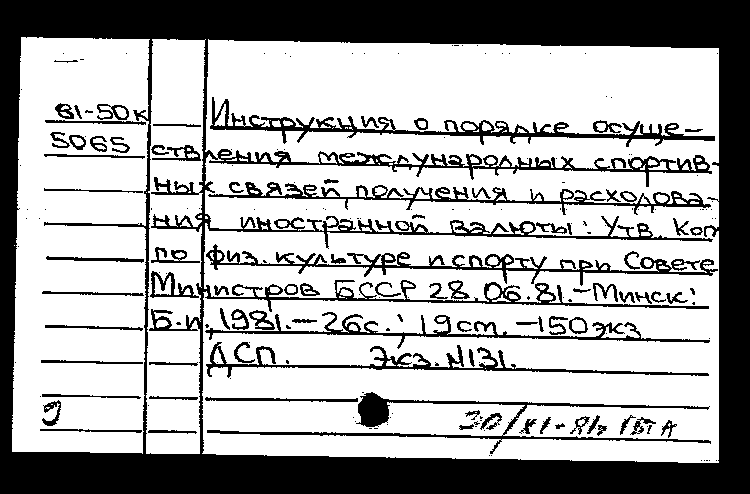 81-50к Инструкция о порядке осуще-
5065 ствления международных спортив-
ных связей, получения и расходова-
ния иностранной валюты: Утв. Ком
по физ. культуре и спорту при Совете
Министров БССР 28.06.81.-Минск:
Б.и., 1981.-26с.; 19см.-150экз
ДСП. Экз. №131.
30/XI-81г